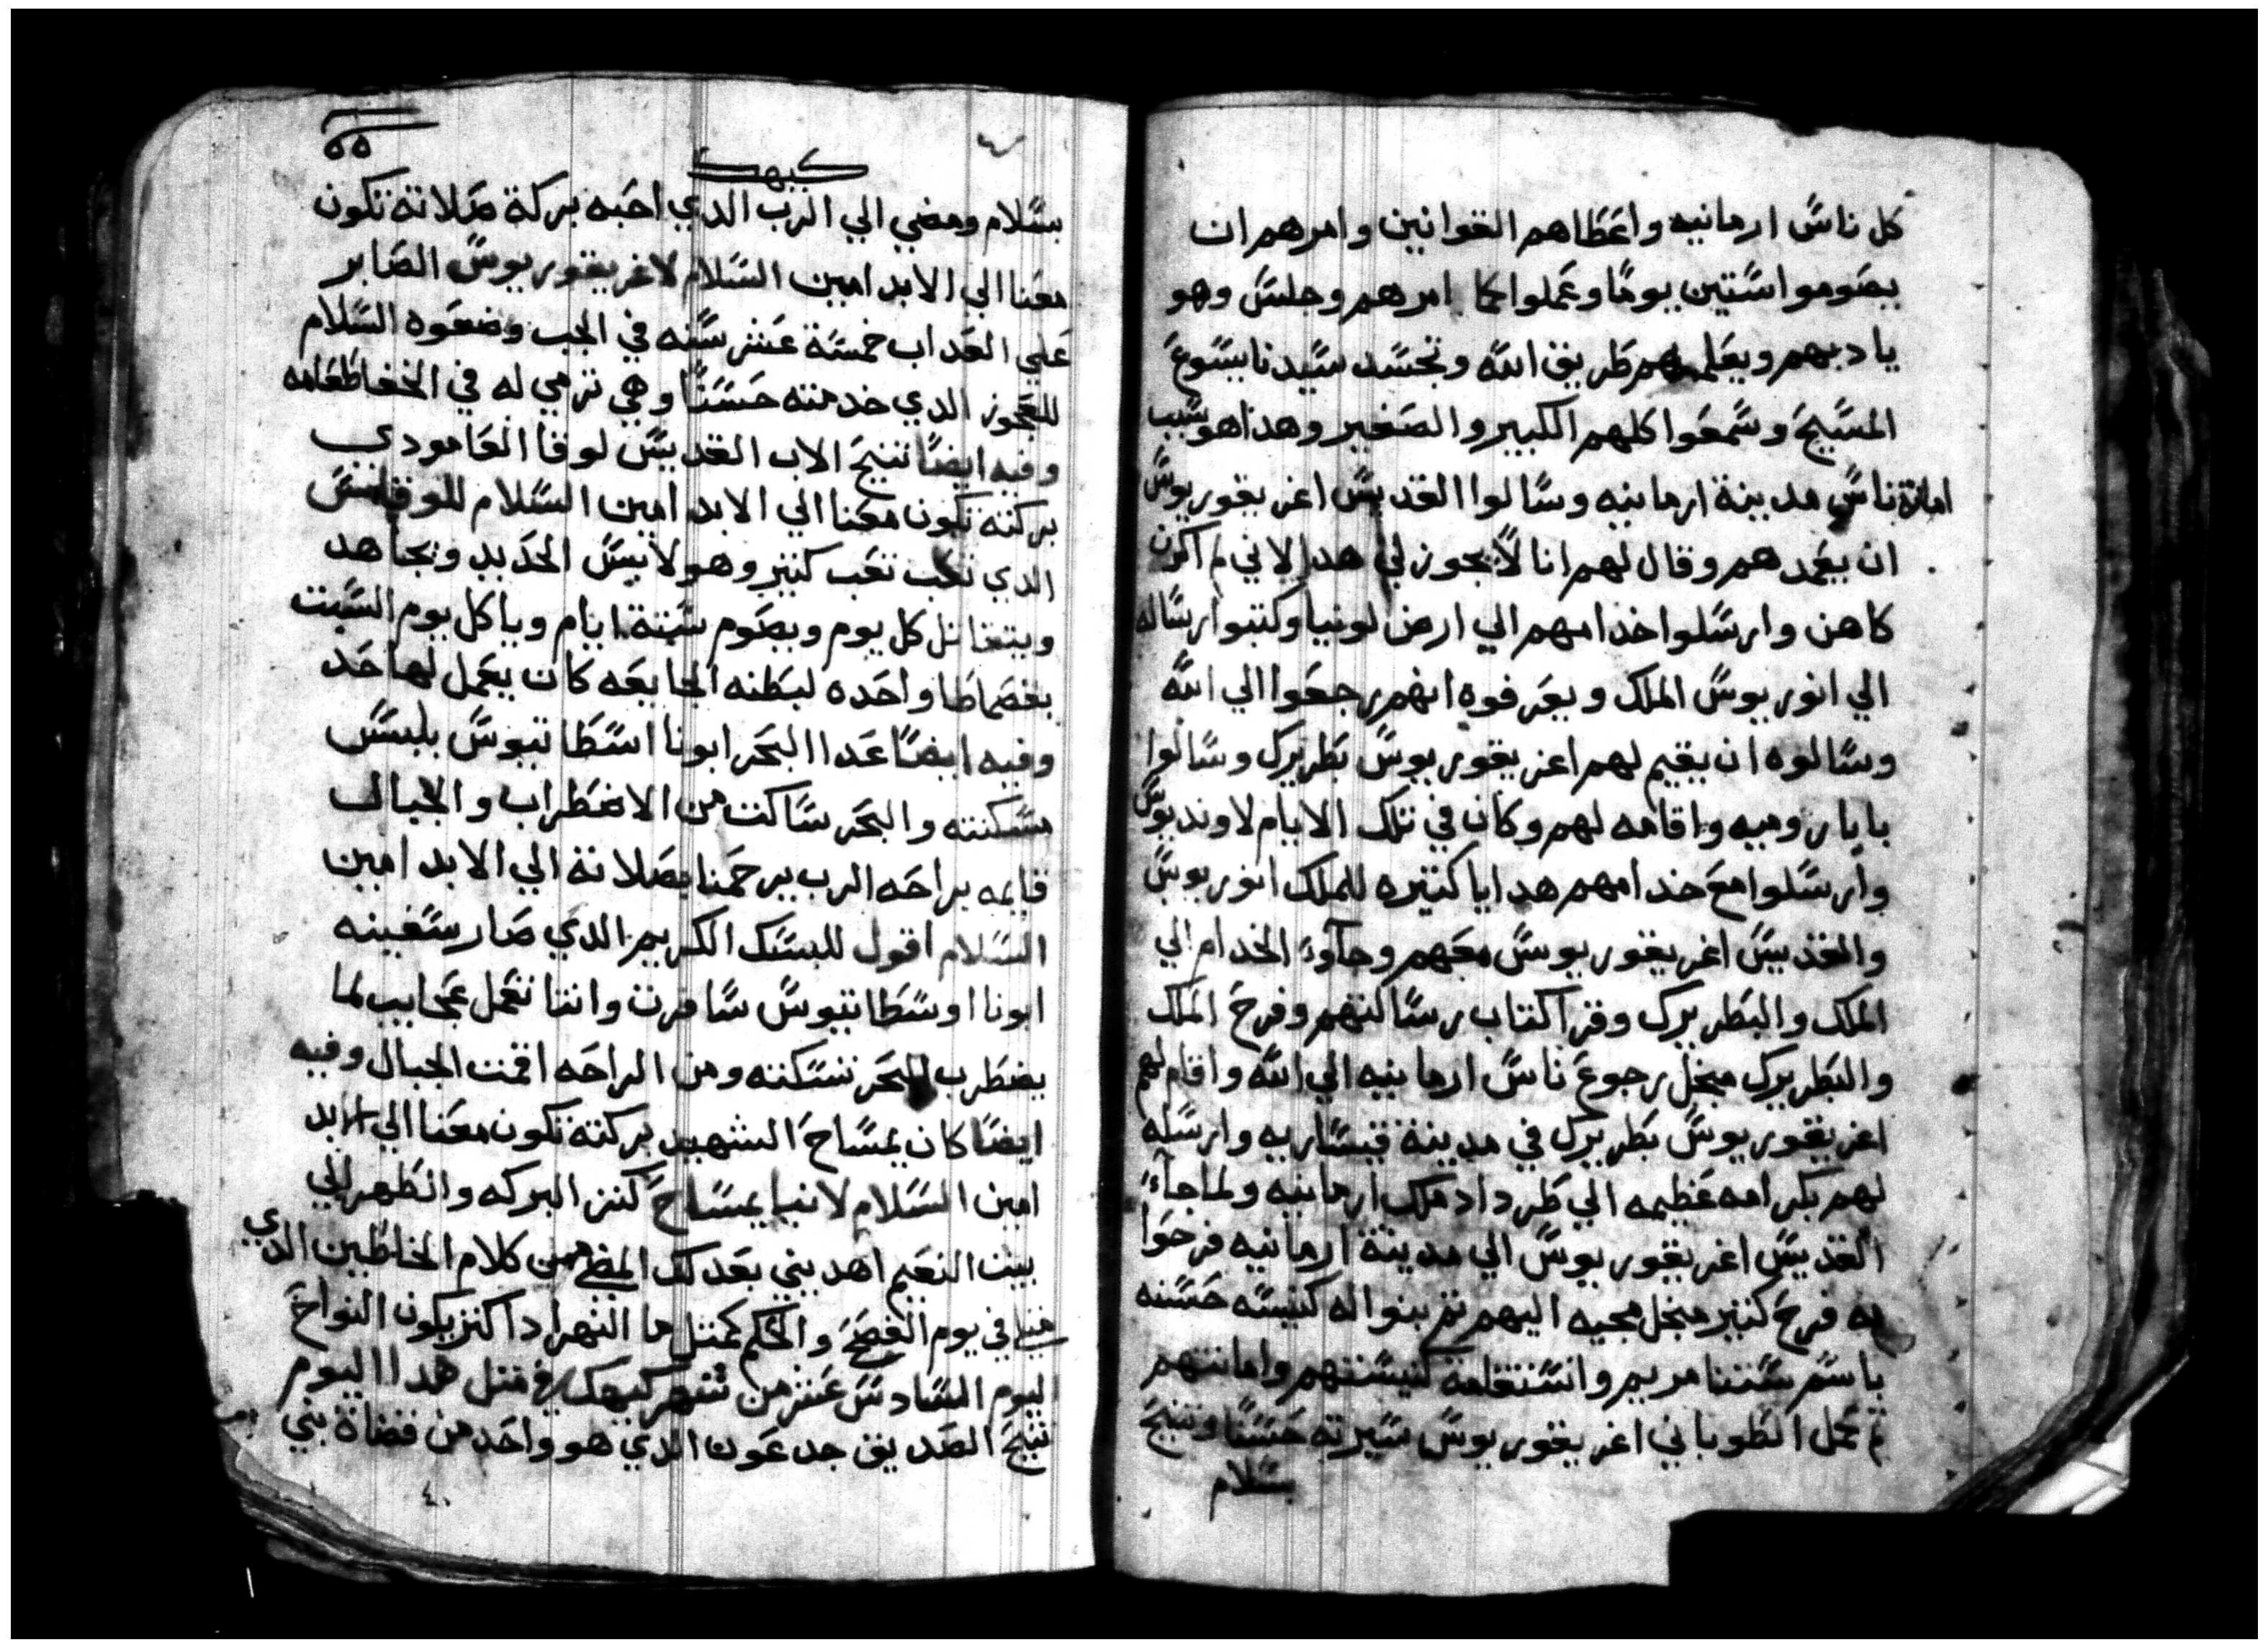 كل ناس ارمانيه واعطاهم القوانين وامرهم ان
يصوموا ستين يومًا وعملوا كما امرهم وجلس وهو
يادبهم ويعلمهم طريق الله وتجسد سيدنا يسوع
المسيح وسمعوا كلهم الكبير والصغير وهدا هو سبب
امانة ناس مدينة ارمانيه وسالوا القديس اغريقوريوس
ان يعمدهم وقال لهم انا لا يجوز لي هدا لاني لم اكون
كاهن وارسلوا خدامهم الي ارض لونيا وكتبوا رساله
الي انوريوس الملك ويعرفوه انهم رجعوا الي الله
وسالوه ان يقيم لهم اغريقوريوس بطريرك وسالوا
بابا روميه واقامه لهم وكان في تلك الايام لاونديوس
وارسلوا مع خدامهم هدايا كتيره للملك انوريوس
والقديس اغريقوريوس معهم وجآوء الخدام الي
الملك والبطريرك وقرا كتاب رسالتهم وفرح الملك
والبطريرك مبخل رجوع ناس ارمانيه الي الله واقام لهم
اغريقوريوس بطريرك في مدينة قيساريه وارسله
لهم بكرامه عظيمه الي طرداد ملك ارمانيه ولما جاء
القديس اغريقوريوس الي مدينة ارمانيه فرحوا
به فرح كتير مبخل مجيه اليهم تم بنوا له كنيسه حسنه
باسم ستنا مريم وانستقامة كنيستهم وامانتهم
تم عمل الطوباني اغريقوريوس سيرته حسنًا وتنيح
بسلام
كيهك
٥٥
بسلام ومضي الي الرب الدي احبه بركة صلاته تكون
معنا الي الابد امين السلام لاغريقوريوس الصابر
علي العداب خمسة عشر سنه في الجب وضعوه السلام
للعجوز الدي خدمته حسنًا وهي ترمي له في الخفا طعامه
وفيه ايضًا تنيح الاب القديس لوقا العامودي
بركته تكون معنا الي الابد امين السلام للوقا
الدي تعب تعب كتير وهو لابس الحديد ويجاهد
ويتقاتل كل يوم ويصوم ستة ايام وياكل يوم السبت
بقصماطا واحده لبطنه الجايعه كان يعمل لها حد
وفيه ايضًا عدا البحر ابونا اسطاتيوس بلبس
مسكنته والبحر ساكت من الاضطراب والجبال
قايمه براحه الرب يرحمنا بصلاته الي الابد امين
السلام اقول للبسك الكريم الدي صار سفينه
ابونا اوسطاتيوس سافرت وانتا تعمل عجايب لما
يضطرب البحر تسكته ومن الراحه اقمت الجبال وفيه
ايضًا كان يمساح الشهيد بركته تكون معنا الي الابد
امين السلام لانبا يمساح كنز البركه والطهر الي
بيت النعيم اهديني بعد لك من كلام الخاطين الدي
في يوم الفصح والحكم كمتل ما النهر اداكتر يكون النواح
اليوم السادس عشر من شهر كيهك في متل هدا اليوم
تنيح الصديق جدعون الدي هو واحد من قضاة بني
٤٠